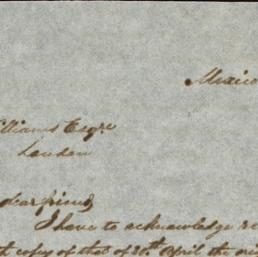 Mexico
illiams Esqre
London
dear friend
I have to acknowledge re
copy of that of 30th April the ori